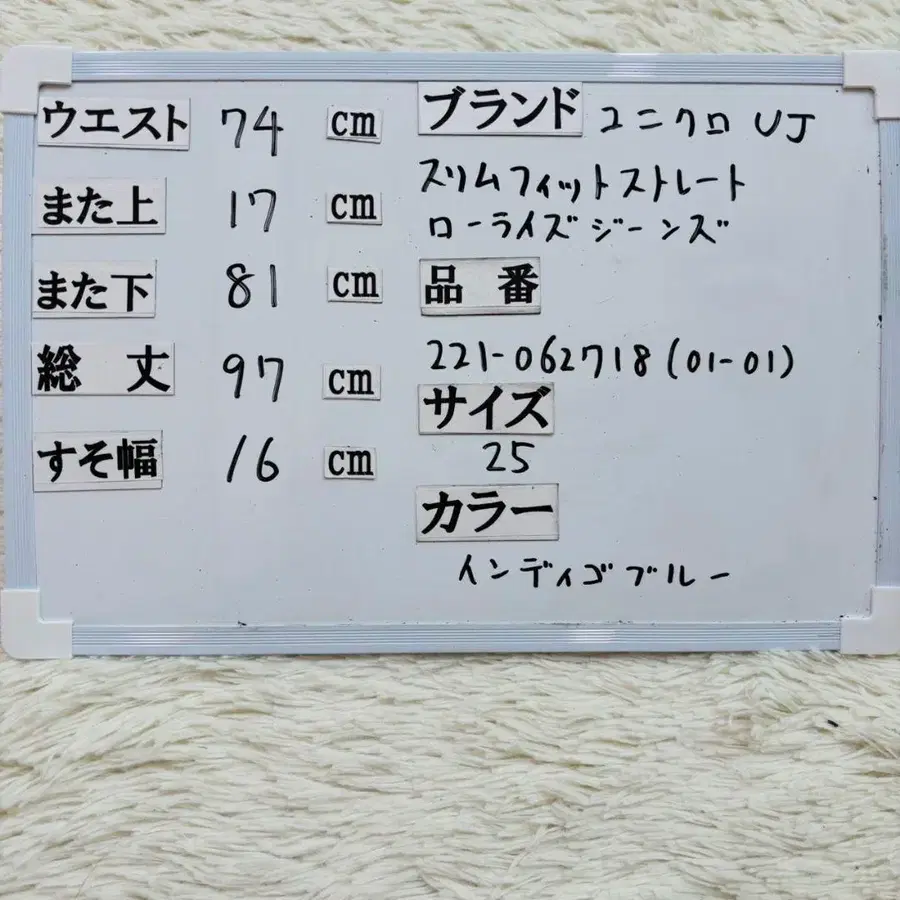 ウエスト 74 cm
また上 17 cm
また下 81 cm
総丈 97 cm
すそ幅 16 cm
ブランド ユニクロ UJ
スリムフィットストレート
ローライズジーンズ
品番
221-062718(01-01)
サイズ
25
カラー
インディゴブルー